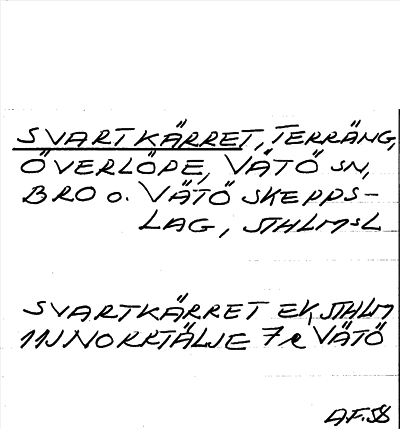 SVARTKÄRRET, TERRÄNG,
ÖVERLÖPE, VÄTÖ SN,
BRO O. VÄTÖ SKEPPS-
LAG, STHLMSL
SVARTKÄRRET EK, STHLM
11J NORRTÄLJE 7 e VÄTÖ
A.F. 58